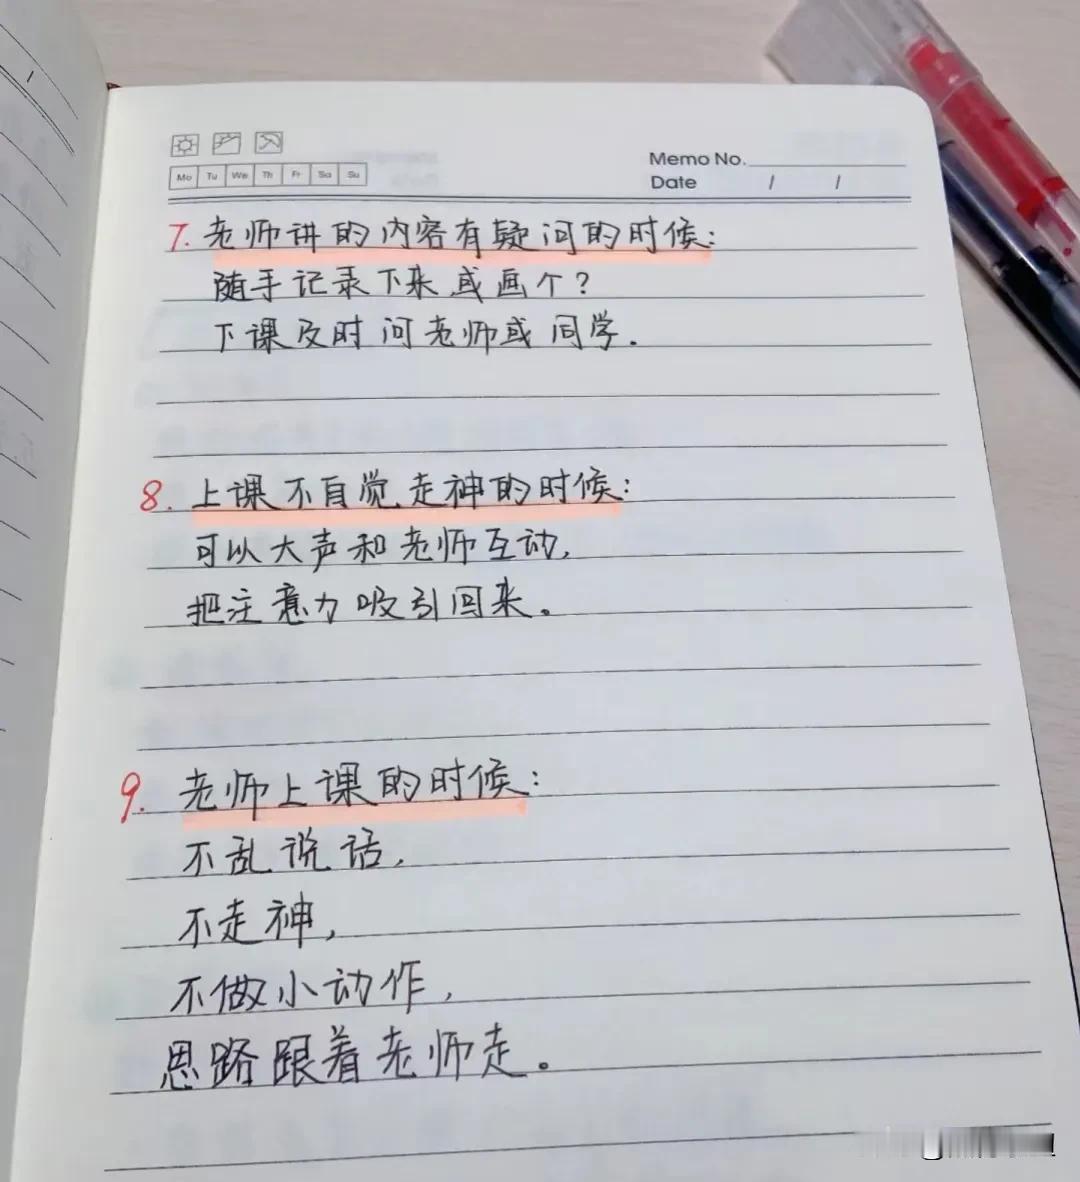 Memo No.
Mo Tu We Th Fr Sa Su
Date / /
7. 老师讲的内容有疑问的时候:
随手记录下来或画个?
下课及时问老师或同学.
8. 上课不自觉走神的时候:
可以大声和老师互动,
把注意力吸引回来。
9. 老师上课的时候:
不乱说话,
不走神,
不做小动作,
思路跟着老师走。